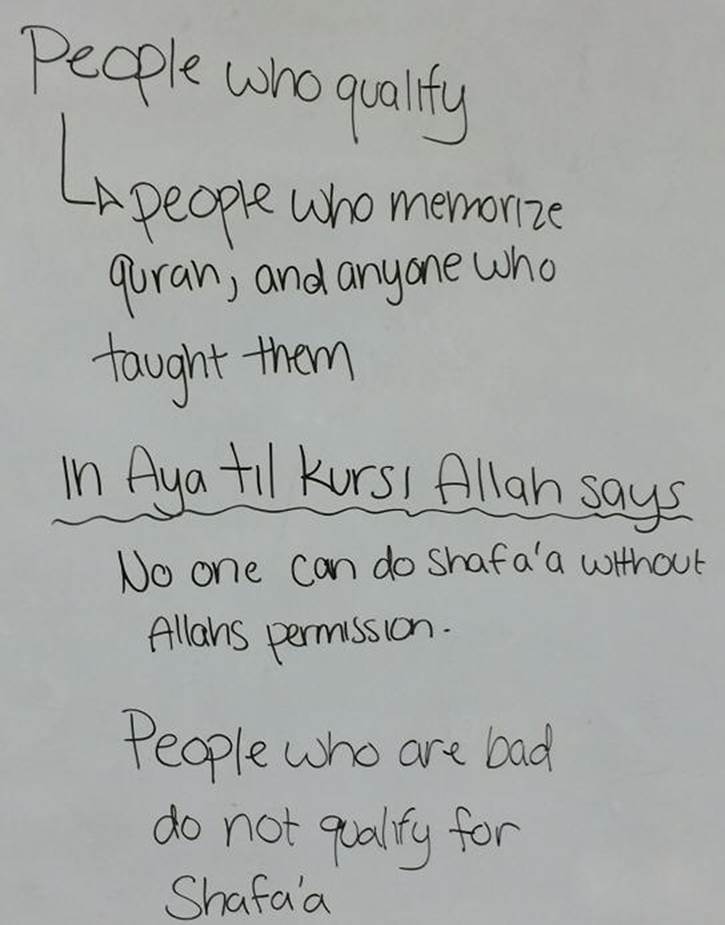 People who qualify
people who memorize
quran, and anyone who
taught them
In Aya til kursi Allah says
No one can do shafa'a without
Allahs permission.
People who are bad
do not qualify for
Shafa'a